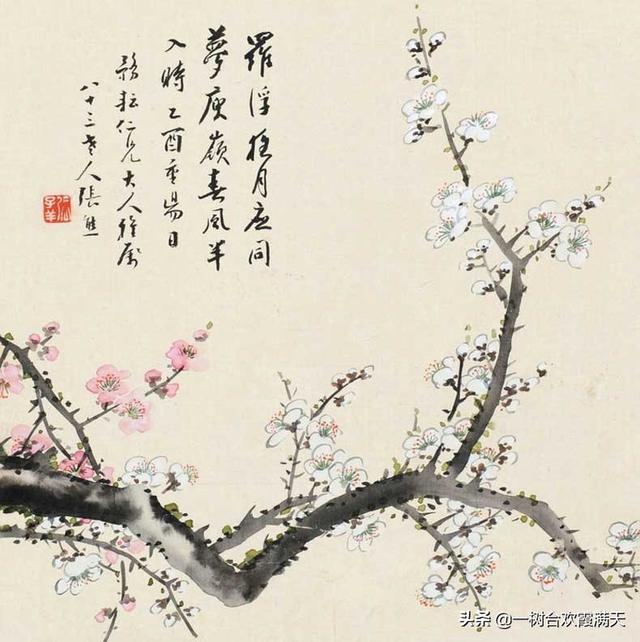 羅浮夜月应同
夢庾嶺春風半
入時乙酉重陽日
耘仁兄大人雅屬
八十三老人張熊
头条 @一树台欢霞满天